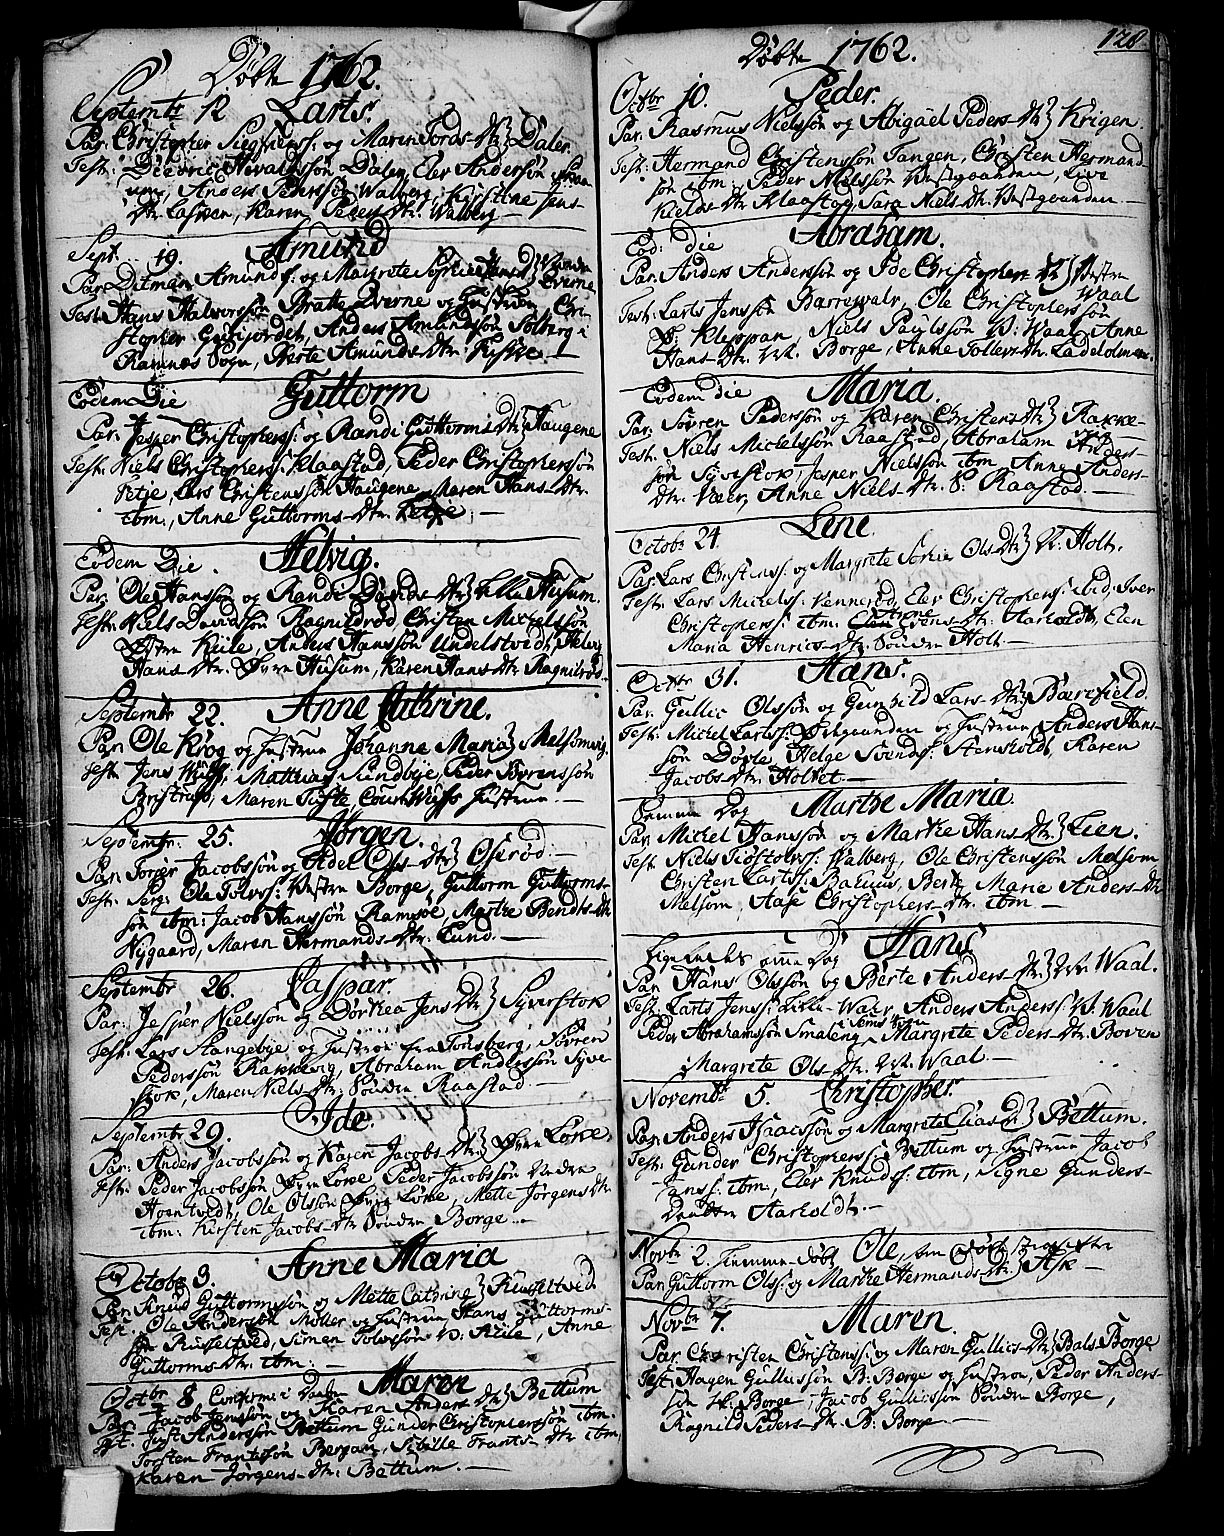 Døbte 1762.
Septembr 12 Larts.
Par: Christopher Siegfriess: og Maren Tords-Dtr Dalen
Test: Diedric Hevaldssøn Dalen, Elev Anderssøn
Anders Pehrssøn Walberg, Kirstine Jens-
Dtr Lasken, Karen Peders Dtr. Walberg
Sept. 19. Amund
Par. Ditman Amunds: og Margrete Sophie Hans D
Test. Hans Halvorssøn Brekke Qverne og Hustrue Chri-
stopher Gulliordet, Anders Amundssøn Solberg i
Ramnæs Sogn, Berte Amunds-Dtr.
Eodem Die Guttorm
Par: Jesper Christophers: og Randi Guttorms Dtr Haugene
Test: Niels Christophers: Klaastad, Peder Christopherssøn
Petje, Lars Christenssøn Haugene, Maren Hans-Dtr.
ibm., Anne Guttorms-Dtr.
Eodem Die. Helvig.
Par: Ole Hanssøn og Randi Davids Dtr Lille Husum.
Test. Niels Davidssøn Ragnildrød Christen Michelssøn
Østen Keile, Anders Hanssøn Undelstvedt, Helvig
Hans-Dtr. Øvre Husum, Karen Hans Dtr Ragnilrød.
Septembr 22. Anne Cathrine.
Par: Ole Krog og Hustrue Johanne Maria Melsomvig
Test. Jens Mathias Sundbye, Peder Sørenssøn
Maren Hustrue.
Septembr: 25. Jørgen.
Par: Torjer Jacobssøn og Adel Ols-Dtr Oserød.
Test: Serg: Ole Vestre Borge, Guttorm Guttorms-
søn ibm: Jacob Hanssøn Ramsøe, Marthe Bendts-Dtr
Nygaard, Maren Hermands-Dtr. Lund.
Septembr 26. Caspar.
Par: Jesper Nielssøn og Dorthea Jens Dtr Syverstok
Test: Lars Slangebye og Hustroe fra Tønsberg, Sövren
Pederssøn Rakkevig, Abraham Anderssøn Syver
stok, Maren Niels Dtr: Sønden Raastad.
Septembr 29. Ide.
Par: Anders Jacobssøn og Karen Jacobs Dtr. Øvre Løve
Test: Peder Jacobssøn Øvre Løve Peder Jacobssøn Nedre
Hoentvedt, Ole Olssøn Øvre Løve, Mette Jørgens Dtr.
ibm: Kirsten Jacobs-Dtr Sønden Borge.
Octobr 3. Anne Maria
Par. Knud Guttormssøn og Mette Cathrine Russeltved
Test: Ole Anderssen Møller og Hustrue Hans Guttorms-
søn Russeltved, Simen Tolvssøn V. Keile, Anne
Guttorms Dtr. ibm:
Octbr 8 Maren
Par. Jacob Jenssøn og Karen Anders Dtr Bettum
Test. Just Anderssøn Bettum Gunder Christopherssøn ibm.
Torsten Frantzssøn Bergan, Sibille Frants-Dtr ibm,
Karen Jørgens-Dtr: Bettum.
Døbte 1762. 128
Octbr 10. Peder.
Par. Rasmus Nielssøn og Abigael Peders-Dtr Krigen.
Test: Hermand Christenssøn Tangen, Christen Hermand-
søn ibm., Peder Nielssøn Vestgaarden, Live
Kields Dtr Klaastad, Sara Niels Dtr. Vestgaarden
Eod: die Abraham.
Par: Anders Anderssøn og Ide Christophers Dtr Vestre Waal
Test: Larts Jenssøn Barrevalv, Ole Christopherssøn
Ø: Kleppan, Niels Paulssøn V: Waal Anne
Hans-Dtr. W. Borge, Anne Tollers Dtr. Ladeholmen.
Eodem die Maria.
Par: Søvren Pederssøn og Karen Christens Dtr Rakke-
Test: Niels Michelssøn Raastad, Abraham Anders-
søn Syvestok, Jesper Nielssøn ibm Anne Anders-
Dtr. Veer, Anne Niels-Dtr: S: Raastad.
Octobr 24. Lene.
Par. Lars Christenss: og Margrete Sophie Ols Dtr N: Holt.
Test: Lars Michelss: Vennerød, Elev Christophers: ibid, Iver
Christophers: ibm: Evens-Dtr: Aarholdt, Elen
Maria Henrics-Dtr. Sønden Holt.
Octbr 31. Hans.
Par. Gullic Olssøn og Gunhild Lars-Dtr Bærefield.
Test: Michel Lartss: Østgaarden og Hustrue Anders Hans-
søn Døvle, Helge Svends: Aarholdt, Karen
Jacobs-Dtr: Holtet.
Samme Dag Marthe Maria
Par. Michel Hanssøn og Marthe Hans-Dtr Lien.
Test: Niels Tiøstolvss: Valberg, Ole Christenssøn Melsom
Christen Lartss: Bakuus, Berte Marie Anders-Dtr
Melsom, Aase Christophers-Dtr. ibm
Ligeledes samme Dag Hans
Par Hans Olssøn og Berte Anders Dtr V. Waal.
Test: Larts Jenss: Waar, Anders Anderss: V. Waal
Peder Abrahamssøn Smaleng, Margrete Peders-Dtr: Boven
Margrete Ols Dtr. V. Waal
Novembr 5. Christopher
Par: Anders Isacssøn og Margrete Elias D Bettum.
Test: Gunder Christopherss: Bettum og Hustrue Jacob
Jenss: ibm:, Elev Knuds: ibm, Signe Gunders-
Daatter Aarholdt.
Novbr 2. hiemme-Døbt Ole, som Døde strax efter
Par Guttorm Olss: og Marthe Hermands-Dtr Ask
Novbr 7. Maren.
Par. Christen Christenss: og Maren Gullics-Dtr Bals Borge
Test: Hagen Gullicssøn B: Borge og Hustrue, Peder Anders-
søn V: Borge, Jacob Gullicssøn Sønden Borge,
Ragnild Peders-Dtr. B: Borge